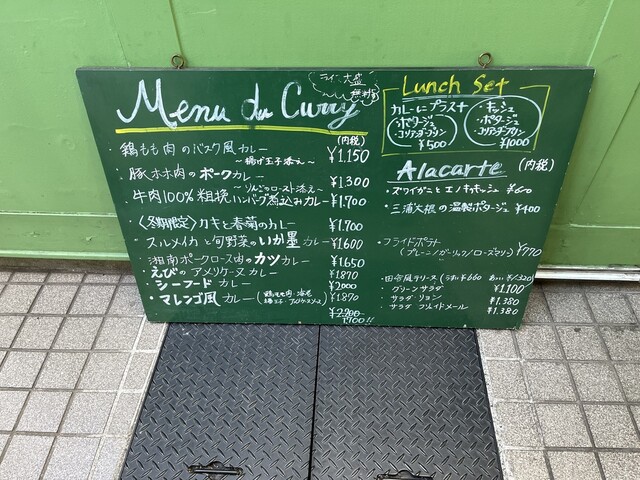 Menu du Curry
ライス大盛
無料
(内税)
鶏もも肉のバスク風カレー
～揚げ玉子添え～ ¥1,150
豚ホホ肉のポークカレー ¥1,300
～リンゴのロースト添え～
牛肉100%粗挽ハンバーグ煮込みカレー ¥1,700
〈冬期限定〉カキと春菊のカレー ¥1,700
スルメイカと旬野菜のいか墨カレー ¥1,600
湘南ポークロース肉のカツカレー ¥1,650
えびのアメリケーヌカレー ¥1870
シーフードカレー ¥2000
マレンゴ風カレー ¥1870
(鶏もも肉・海老
揚玉子・アメリケソース)
¥2,200
1700!!
Lunch Set
カレーにプラス+
・ポタージュ
・コリアンダープリン
¥500
キッシュ
・ポタージュ
・コリアンダープリン
¥1000
Alacarte (内税)
・ズワイガニとエノキキッシュ ¥600
・三浦大根の温製ポタージュ ¥400
・フライドポテト
(プレーン/ガーリック/ローズマリー) ¥770
・田舎風テリーヌ ¥660 ¥1,320
・グリーンサラダ ¥1,100
・サラダ・リヨン ¥1,380
・サラダ ¥1,380